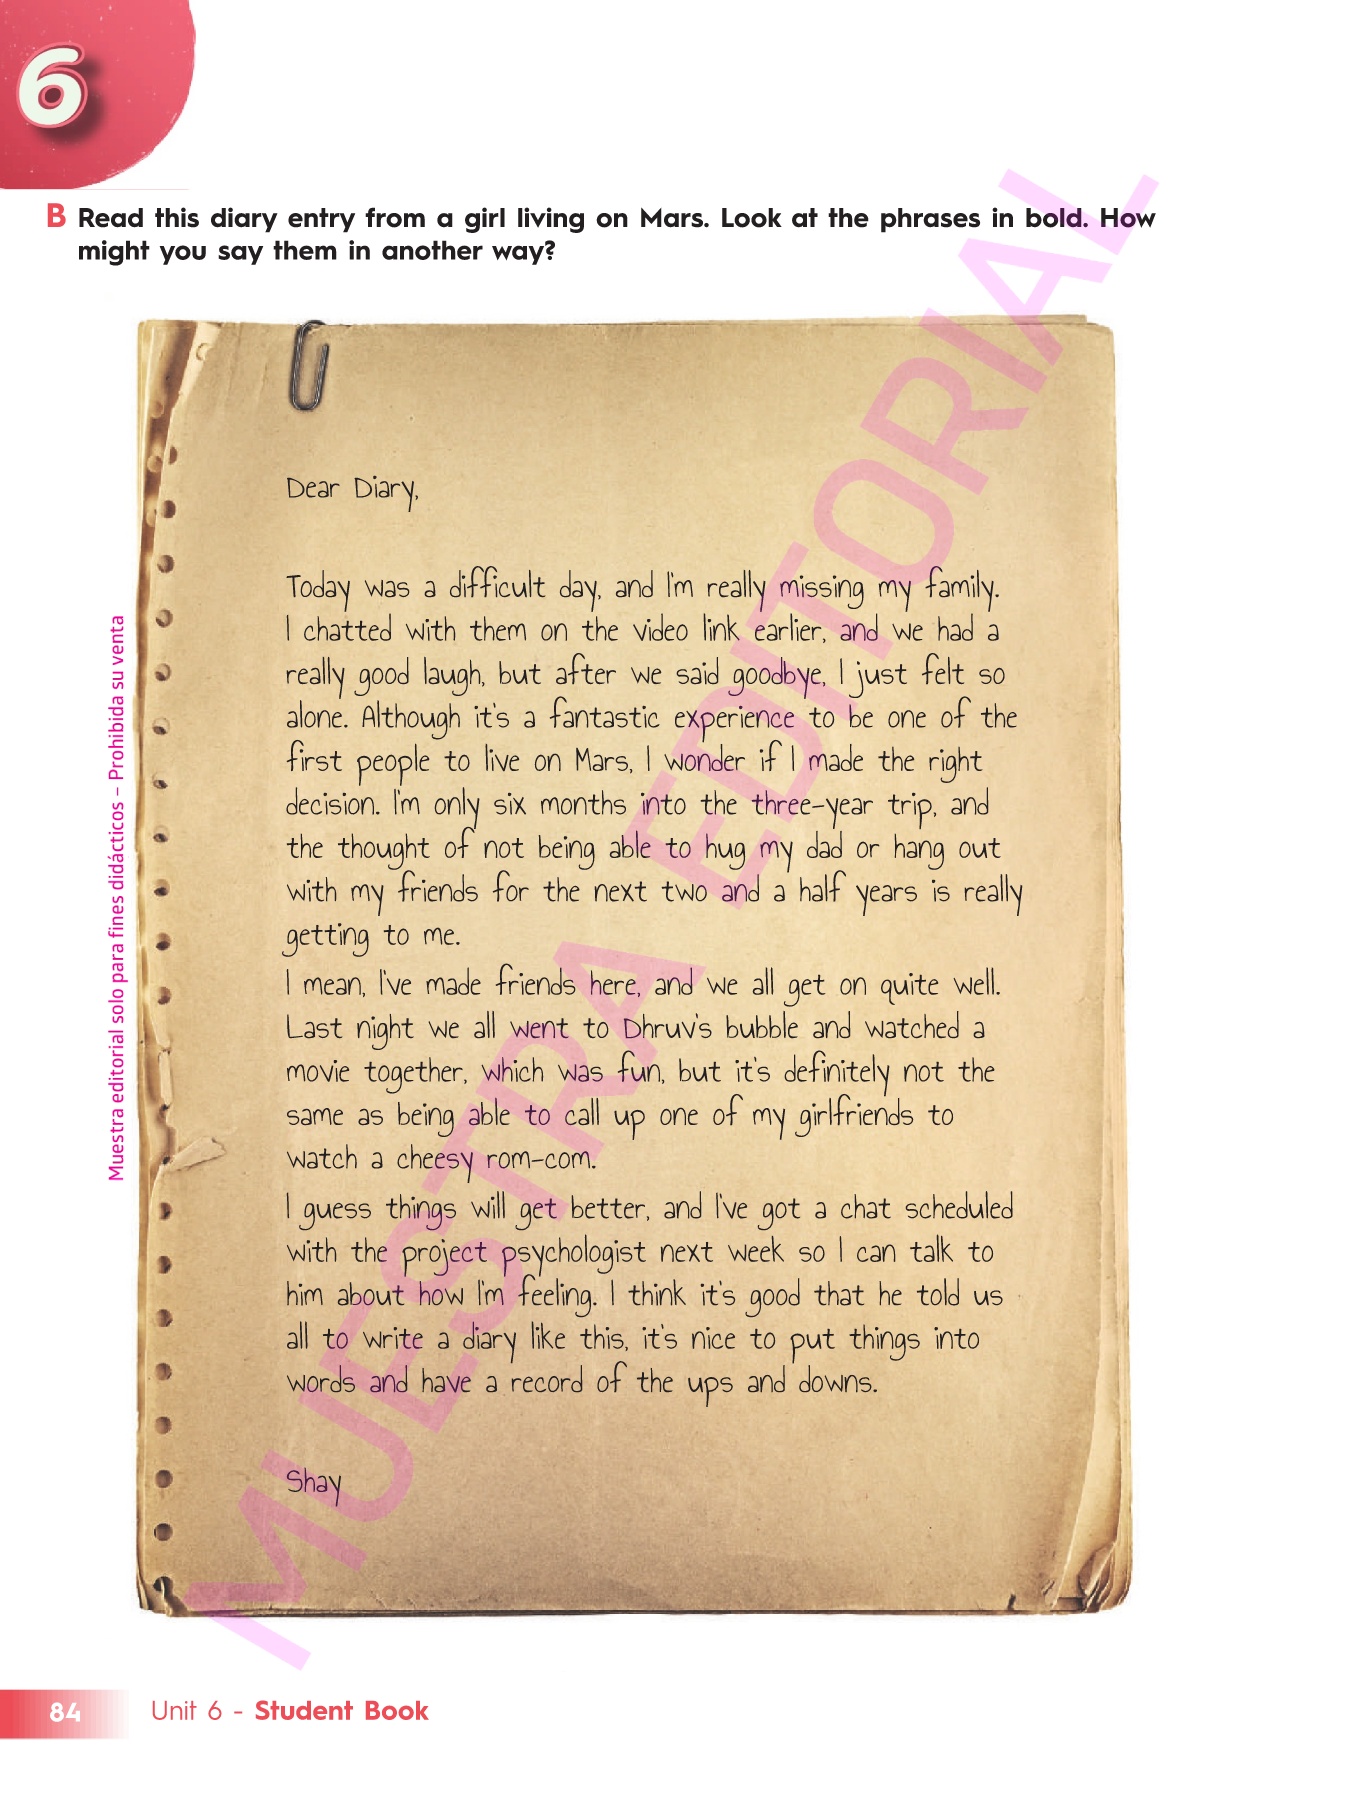 6
B Read this diary entry from a girl living on Mars. Look at the phrases in bold. How
might you say them in another way?
Dear Diary,
Today was a difficult day, and I'm really missing my family.
I chatted with them on the video link earlier, and we had a
really good laugh, but after we said goodbye, I just felt so
alone. Although it's a fantastic experience to be one of the
first people to live on Mars, I wonder if I made the right
decision. I'm only six months into the three-year trip, and
the thought of not being able to hug my dad or hang out
with my friends for the next two and a half years is really
getting to me.
I mean, I've made friends here, and we all get on quite well.
Last night we all went to Dhruv's bubble and watched a
movie together, which was fun, but it's definitely not the
same as being able to call up one of my girlfriends to
watch a cheesy rom-com.
I guess things will get better, and I've got a chat scheduled
with the project psychologist next week so I can talk to
him about how I'm feeling. I think it's good that he told us
all to write a diary like this, it's nice to put things into
words and have a record of the ups and downs.
Shay
Muestra editorial solo para fines didácticos – Prohibida su venta
MUESTRA EDITORIAL
84 Unit 6 - Student Book